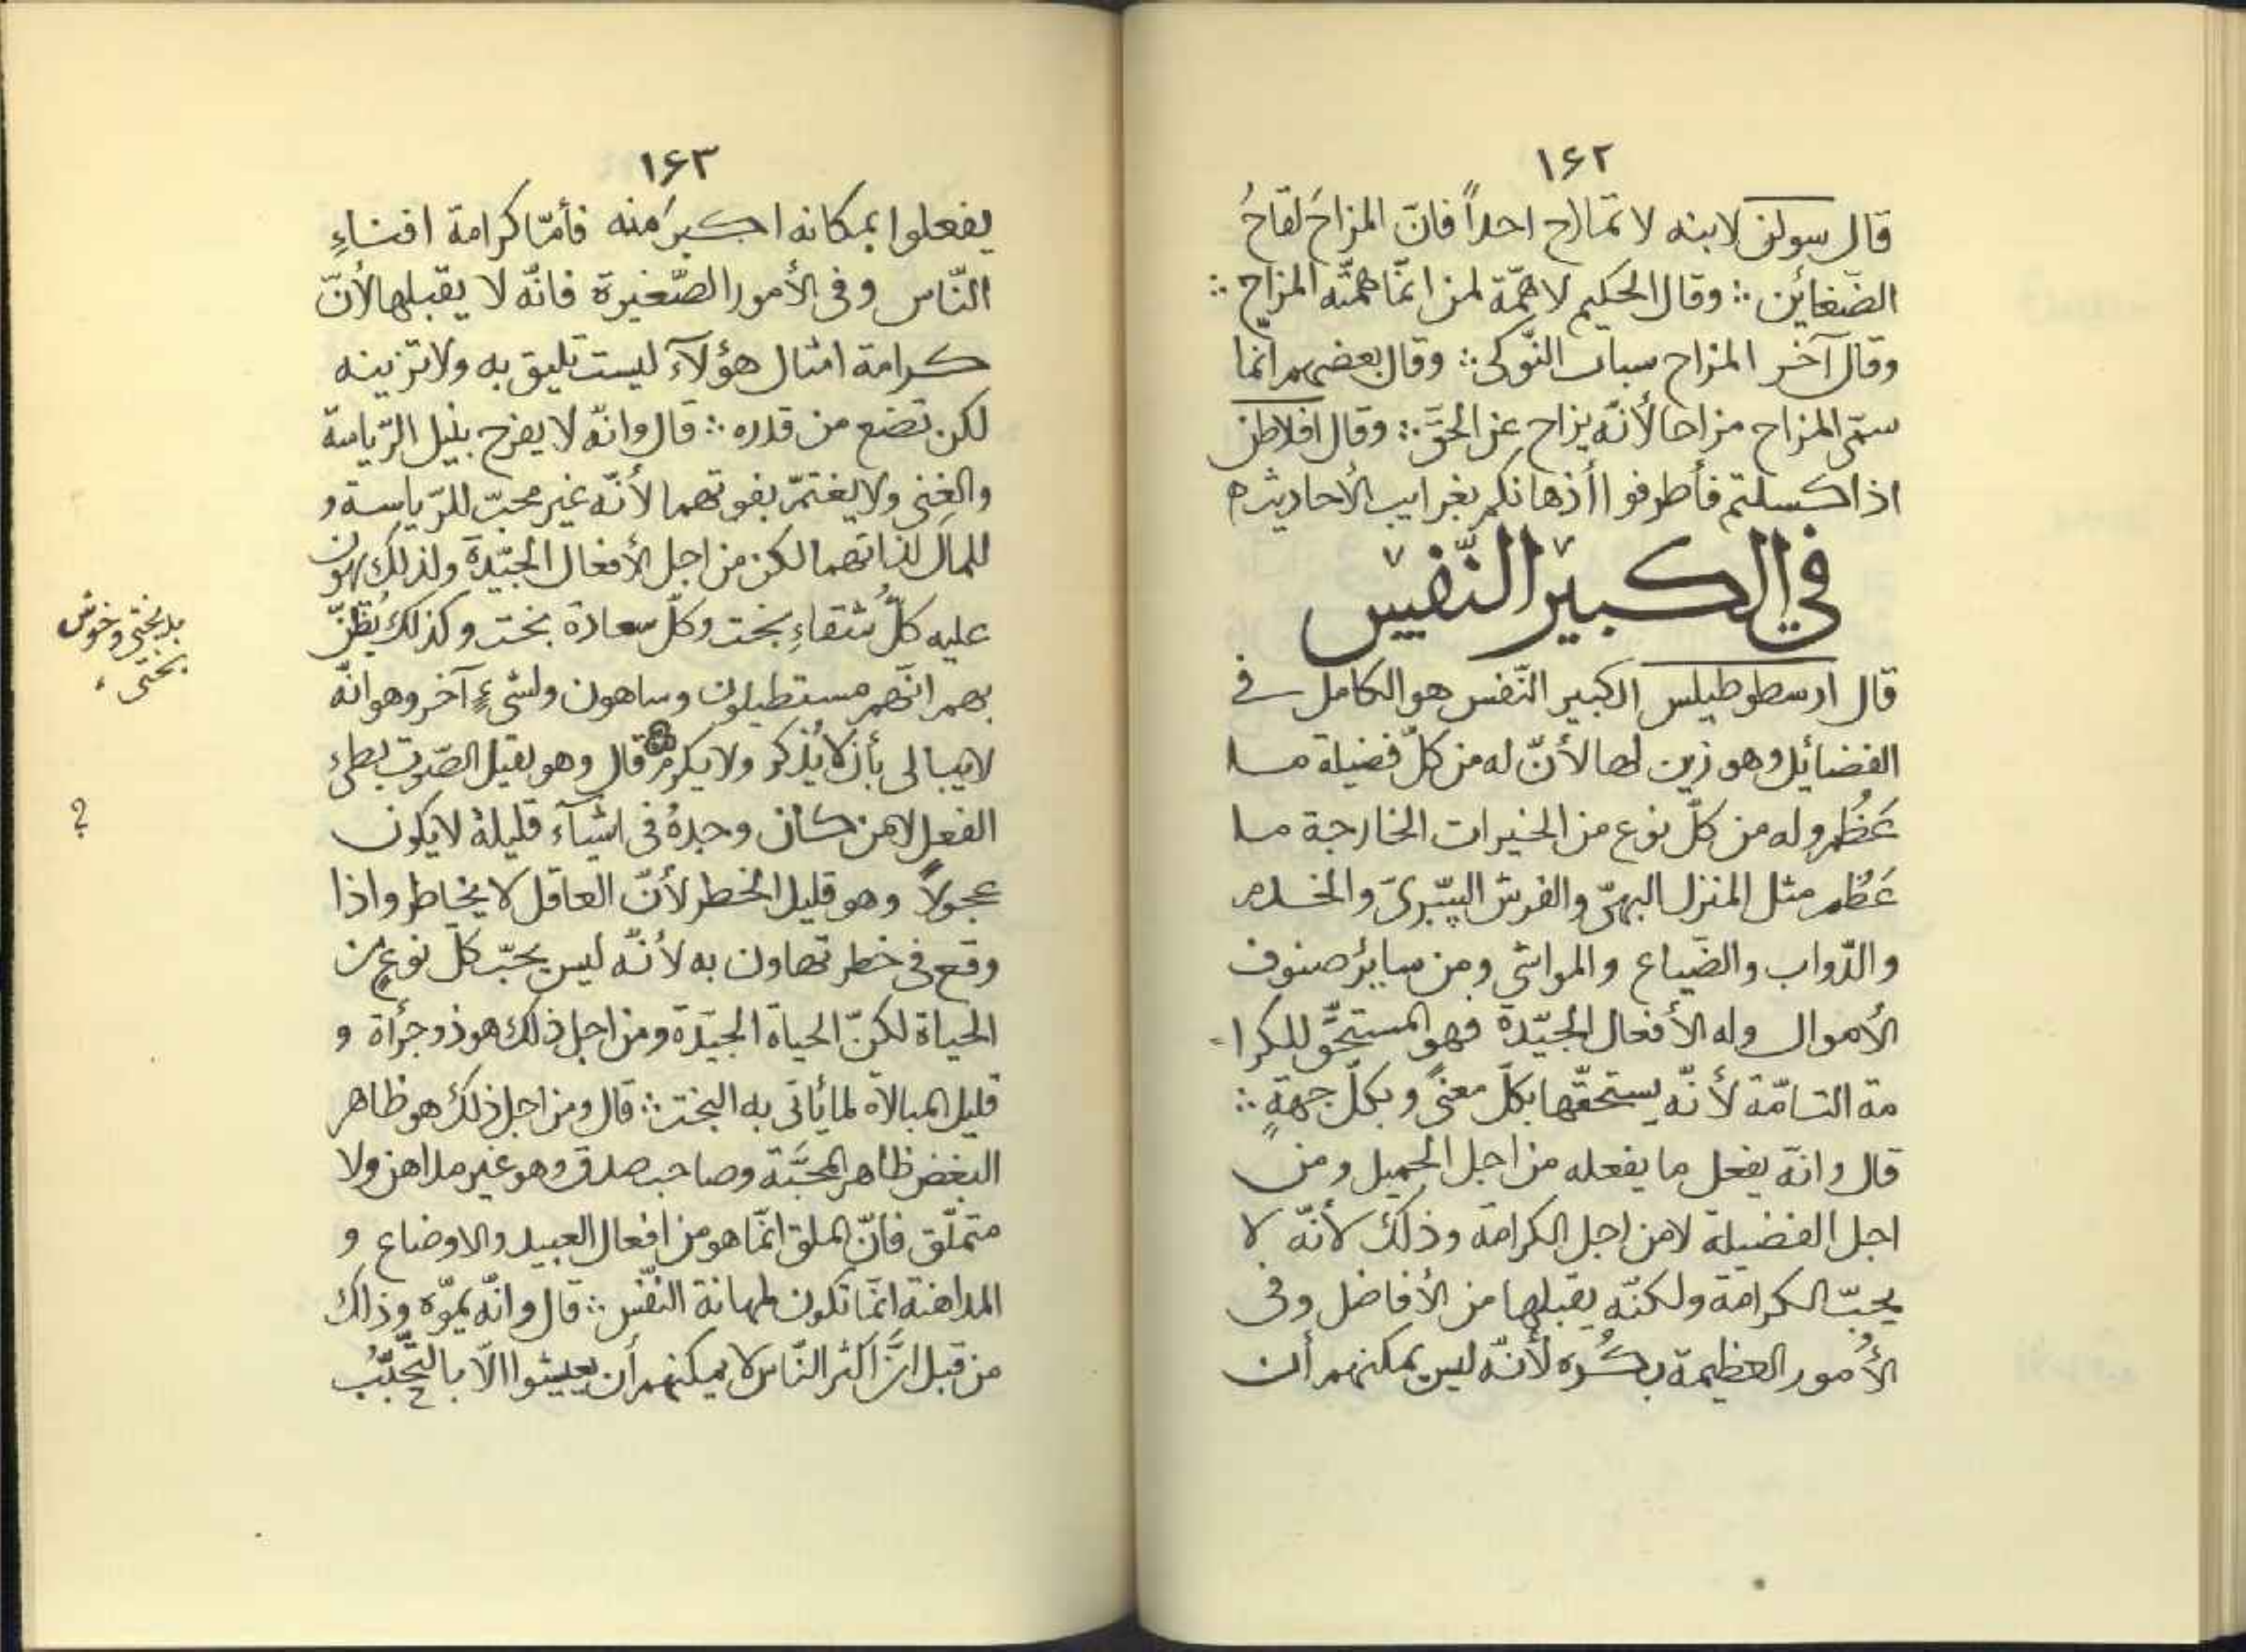 ١۶٢
قال سولن لابنه لا تمازح احداً فانّ المزاحَ لقاحُ
الضّغائن ∴ وقال الحكيم لا همّة لمن انّما همّته المزاح ∴
وقال آخر المزاح سباب النّوكى ∴ وقال بعضهم انّما
سمّى المزاح مزاحا لأنّه يزاح عن الحقّ ∴ وقال افلاطن
اذا كسلتم فأطرفوا أذهانكم بغرايب الأحاديث ه
في الكبير النّفس
قال ارسطوطيلس الكبير النّفس هو الكامل في
الفضائل وهو زين لها لأنّ له من كلّ فضيلة ما
عَظُم وله من كلّ نوع من الخيرات الخارجة ما
عَظُم مثل المنزل البهىّ والفرش السّرىّ والخدم
والدّواب والضّياع والمواشى ومن سائر صنوف
الأموال وله الأفعال الجيّدة فهو المستحقّ للكرا-
مة التامّة لأنّه يستحقّها بكلّ معنىً وبكلّ جهةٍ ∴
قال وانّه يفعل ما يفعله من اجل الجميل ومن
اجل الفضيلة لا من اجل الكرامة وذلك لأنّه لا
يحبّ الكرامة ولكنّه يقبلها من الأفاضل وفى
الأمور العظيمة بكُره لأنّه ليس يمكنهم أن
١۶٣
يفعلوا بمكانه اكبرَ منه فأمّا كرامة افناءِ
النّاس وفى الأمور الصّغيرة فانّه لا يقبلها لأنّ
كرامة امثال هؤلآء ليست تليق به ولا تزينه
لكن تضع من قدره ∴ قال وانّه لا يفرح بنيل الرّياسة
والغنى ولا يغتمّ بفوتهما لأنّه غير محبّ للرّياسة و
للمال لذاتهما لكن من اجل الأفعال الجيّدة ولذلك يهون
عليه كلّ شقاءِ بخت وكلّ سعادة بخت وكذلك يُظنّ
بهم انّهم مستطيلون وساهون ولشىءٍ آخر وهو انّه
لا يبالى بأن لا يُذكر ولا يكرم قال وهو ثقيل الصّوت بطىء
الفعل لا من كان وجدهُ فى اشيآء قليلة لا يكون
عجولاً وهو قليل الخطر لأنّ العاقل لا يخاطر واذا
وقع فى خطر تهاون به لأنّه ليس يحبّ كلّ نوعٍ من
الحياة لكنّ الحياة الجيّدة ومن اجل ذلك هو ذو جرأة و
قليل المبالاة لما يأتى به البخت ∴ قال ومن اجل ذلك هو ظاهر
البغض ظاهر المحبّة وصاحب صدق وهو غير مداهن ولا
متملّق فانّ الملق انّما هو من افعال العبيد والاوضاع و
المداهنة انّما تكون لمهانة النّفس ∴ قال وانّه يموّه وذلك
من قبل انّ اكثر النّاس لا يمكنهم أن يعيشوا الّا بالتّحبّب
بدبختى و خوش
بختى ء
؟